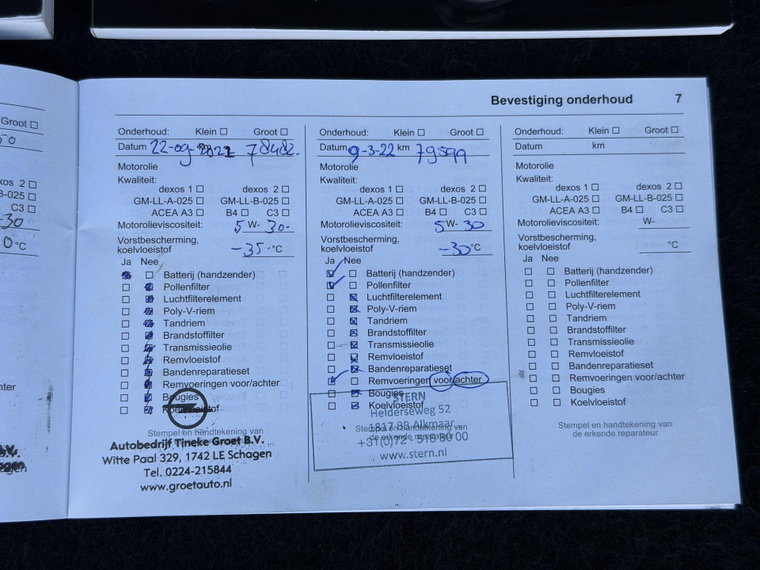 Bevestiging onderhoud 7
Groot
Onderhoud: Klein Groot
Datum 22-09-2021 78482.
Motorolie
Kwaliteit:
dexos 1 dexos 2
GM-LL-A-025 GM-LL-B-025
ACEA A3 B4 C3
Motorolieviscositeit: 5 W- 30.
Vorstbescherming,
koelvloeistof -35. °C
Ja Nee
Batterij (handzender)
Pollenfilter
Luchtfilterelement
Poly-V-riem
Tandriem
Brandstoffilter
Transmissieolie
Remvloeistof
Bandenreparatieset
Remvoeringen voor/achter
Bougies
Koelvloeistof
Stempel en handtekening van
Autobedrijf Tineke Groet B.V.
Witte Paal 329, 1742 LE Schagen
Tel. 0224-215844
www.groetauto.nl
Onderhoud: Klein Groot
Datum 9-3-22 km 79599
Motorolie
Kwaliteit:
dexos 1 dexos 2
GM-LL-A-025 GM-LL-B-025
ACEA A3 B4 C3
Motorolieviscositeit: 5 W- 30
Vorstbescherming,
koelvloeistof -30 °C
Ja Nee
Batterij (handzender)
Pollenfilter
Luchtfilterelement
Poly-V-riem
Tandriem
Brandstoffilter
Transmissieolie
Remvloeistof
Bandenreparatieset
Remvoeringen voor/achter
Bougies
Koelvloeistof
STERN
Helderseweg 52
1817 BB Alkmaar
Stempel en handtekening van
de erkende reparateur
www.stern.nl
Onderhoud: Klein Groot
Datum km
Motorolie
Kwaliteit:
dexos 1 dexos 2
GM-LL-A-025 GM-LL-B-025
ACEA A3 B4 C3
Motorolieviscositeit: W-
Vorstbescherming,
koelvloeistof °C
Ja Nee
Batterij (handzender)
Pollenfilter
Luchtfilterelement
Poly-V-riem
Tandriem
Brandstoffilter
Transmissieolie
Remvloeistof
Bandenreparatieset
Remvoeringen voor/achter
Bougies
Koelvloeistof
Stempel en handtekening van
de erkende reparateur